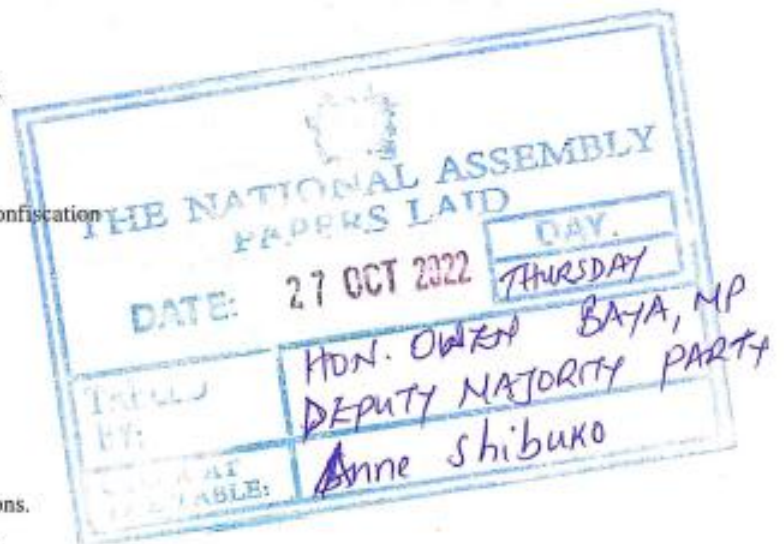 onfiscation
THE NATIONAL ASSEMBLY
PAPERS LAID
DATE: 27 OCT 2022
DAY.
THURSDAY
TABLED BY:
HON. OWEN BAYA, MP
DEPUTY MAJORITY PARTY
TABLE:
Anne Shibuko
ons.